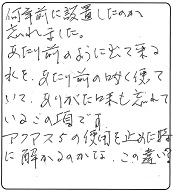 何年前に設置したのか
忘れました。
あたり前のように出て来る
水を、あたり前の如く使って
いて、ありがた味も忘れて
いるこの頃です。
アクアス5の使用を止めた時
に解かるのかな、この違い?